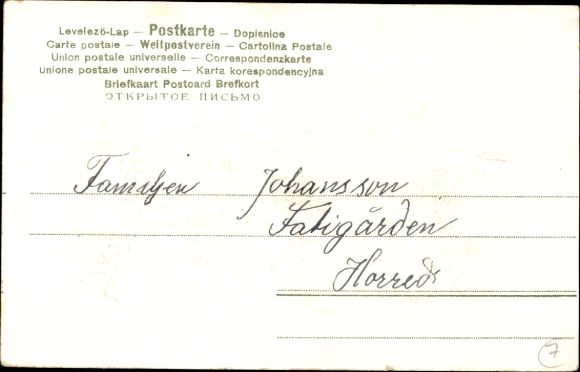 Levelezö-Lap — Postkarte — Dopisnice
Carte postale — Weltpostverein — Cartolina Postale
Union postale universelle — Correspondenzkarte
Unione postale universale — Karta korespondencyjna
Briefkaart Postcard Brefkort
ОТКРЫТОЕ ПИСЬМО
Familjen Johansson
Fatigården
Horred
7